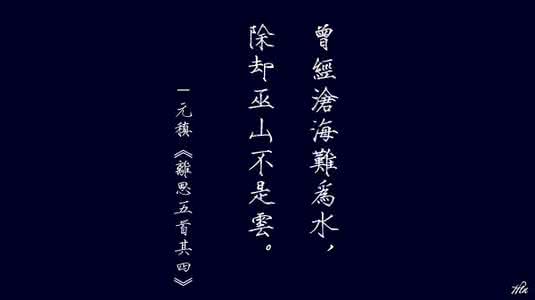 曾經滄海難爲水，
除却巫山不是雲。
—元稹《離思五首其四》